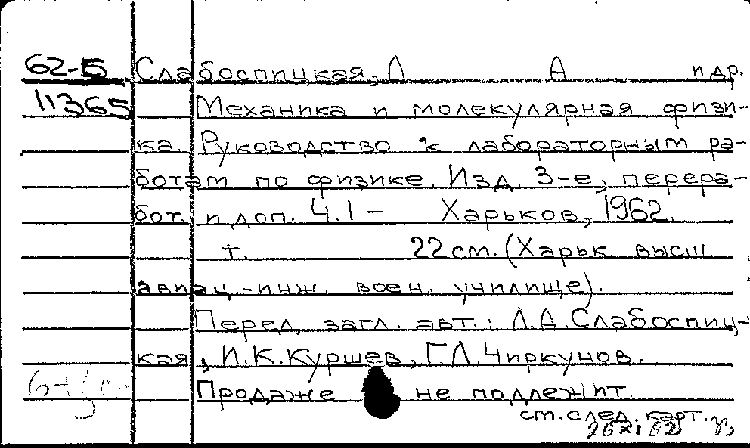 62-5 Слабоспицкая, Л А и др.
11365 Механика и молекулярная физи-
ка. Руководство к лабораторным ра-
ботам по физике. Изд. 3-е, перера-
бот. и доп. Ч. 1 - Харьков, 1962.
т. 22 см. (Харьк. высш.
авиац.-инж. воен. училище).
Перед загл. авт.: Л.А. Слабоспиц-
кая, И.К. Куршев, Г.Л. Чиркунов.
Продаже не подлежит.
ст. след. карт.